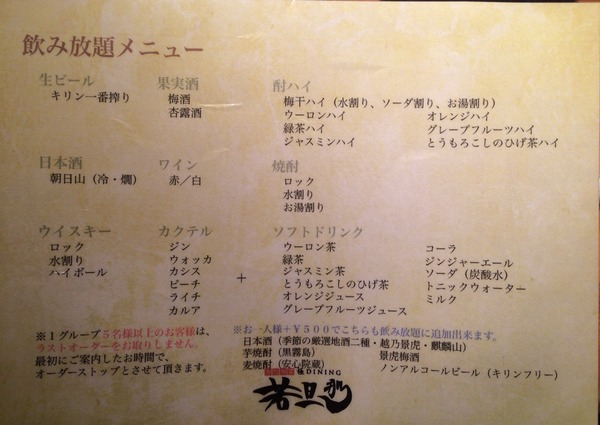 飲み放題メニュー
生ビール
キリン一番搾り
果実酒
梅酒
杏露酒
酎ハイ
梅干ハイ（水割り、ソーダ割り、お湯割り）
ウーロンハイ
緑茶ハイ
ジャスミンハイ
オレンジハイ
グレープフルーツハイ
とうもろこしのひげ茶ハイ
日本酒
朝日山（冷・燗）
ワイン
赤／白
焼酎
ロック
水割り
お湯割り
ウイスキー
ロック
水割り
ハイボール
カクテル
ジン
ウォッカ
カシス
ピーチ
ライチ
カルア
+
ソフトドリンク
ウーロン茶
緑茶
ジャスミン茶
とうもろこしのひげ茶
オレンジジュース
グレープフルーツジュース
コーラ
ジンジャーエール
ソーダ（炭酸水）
トニックウォーター
ミルク
※１グループ５名様以上のお客様は、
ラストオーダーをお取りしません。
最初にご案内したお時間で、
オーダーストップとさせて頂きます。
※お一人様＋￥５００でこちらも飲み放題に追加出来ます。
日本酒（季節の厳選地酒二種・越乃景虎・麒麟山）
芋焼酎（黒霧島）
麦焼酎（安心院蔵）
景虎梅酒
ノンアルコールビール（キリンフリー）
DINING
若旦那